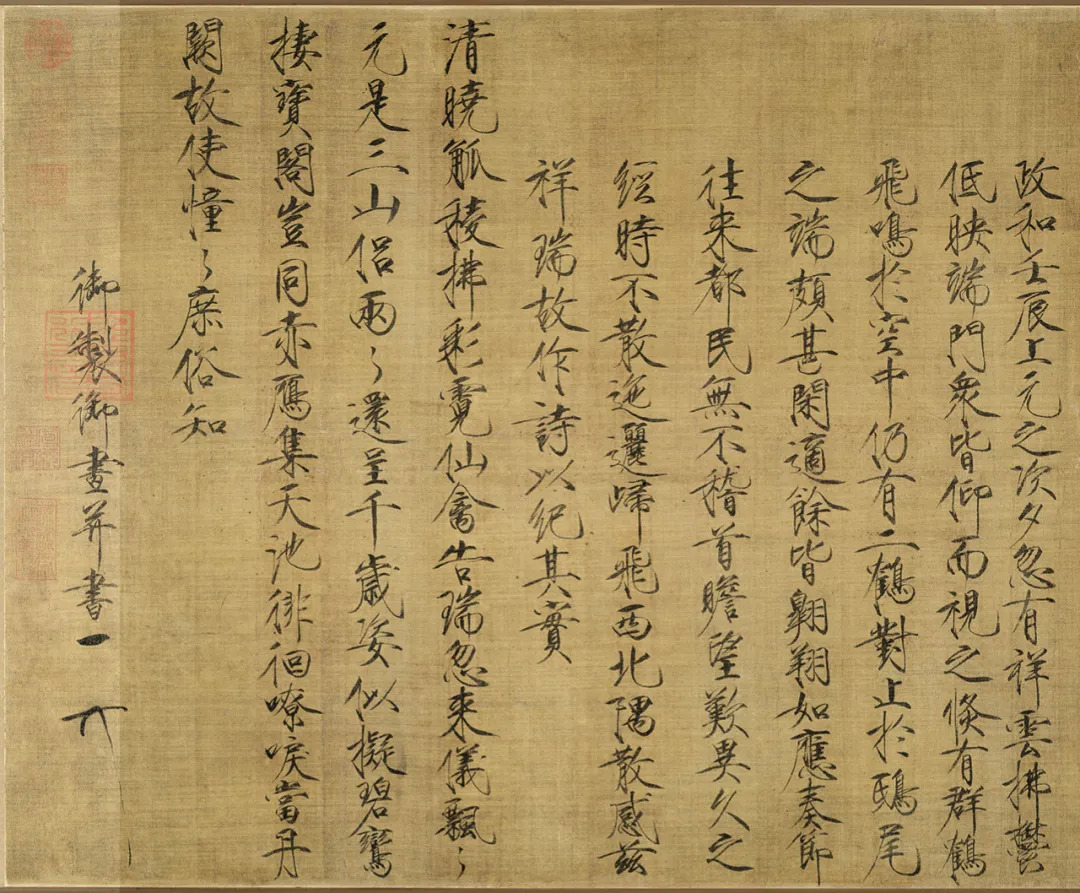 政和壬辰上元之次夕忽有祥雲拂鬱
低映端門衆皆仰而視之倏有群鶴
飛鳴於空中仍有二鶴對止於鴟尾
之端頗甚閑適餘皆翱翔如應奏節
往来都民無不稽首瞻望歎異久之
經時不散迤邐歸飛西北隅散感兹
祥瑞故作詩以紀其實
清曉觚稜拂彩霓仙禽告瑞忽来儀飄〻
元是三山侶兩〻還呈千歲姿似擬碧鸞
棲寶閣豈同赤鴈集天池徘徊嘹唳當丹
闕故使憧〻庶俗知
御製御畫并書